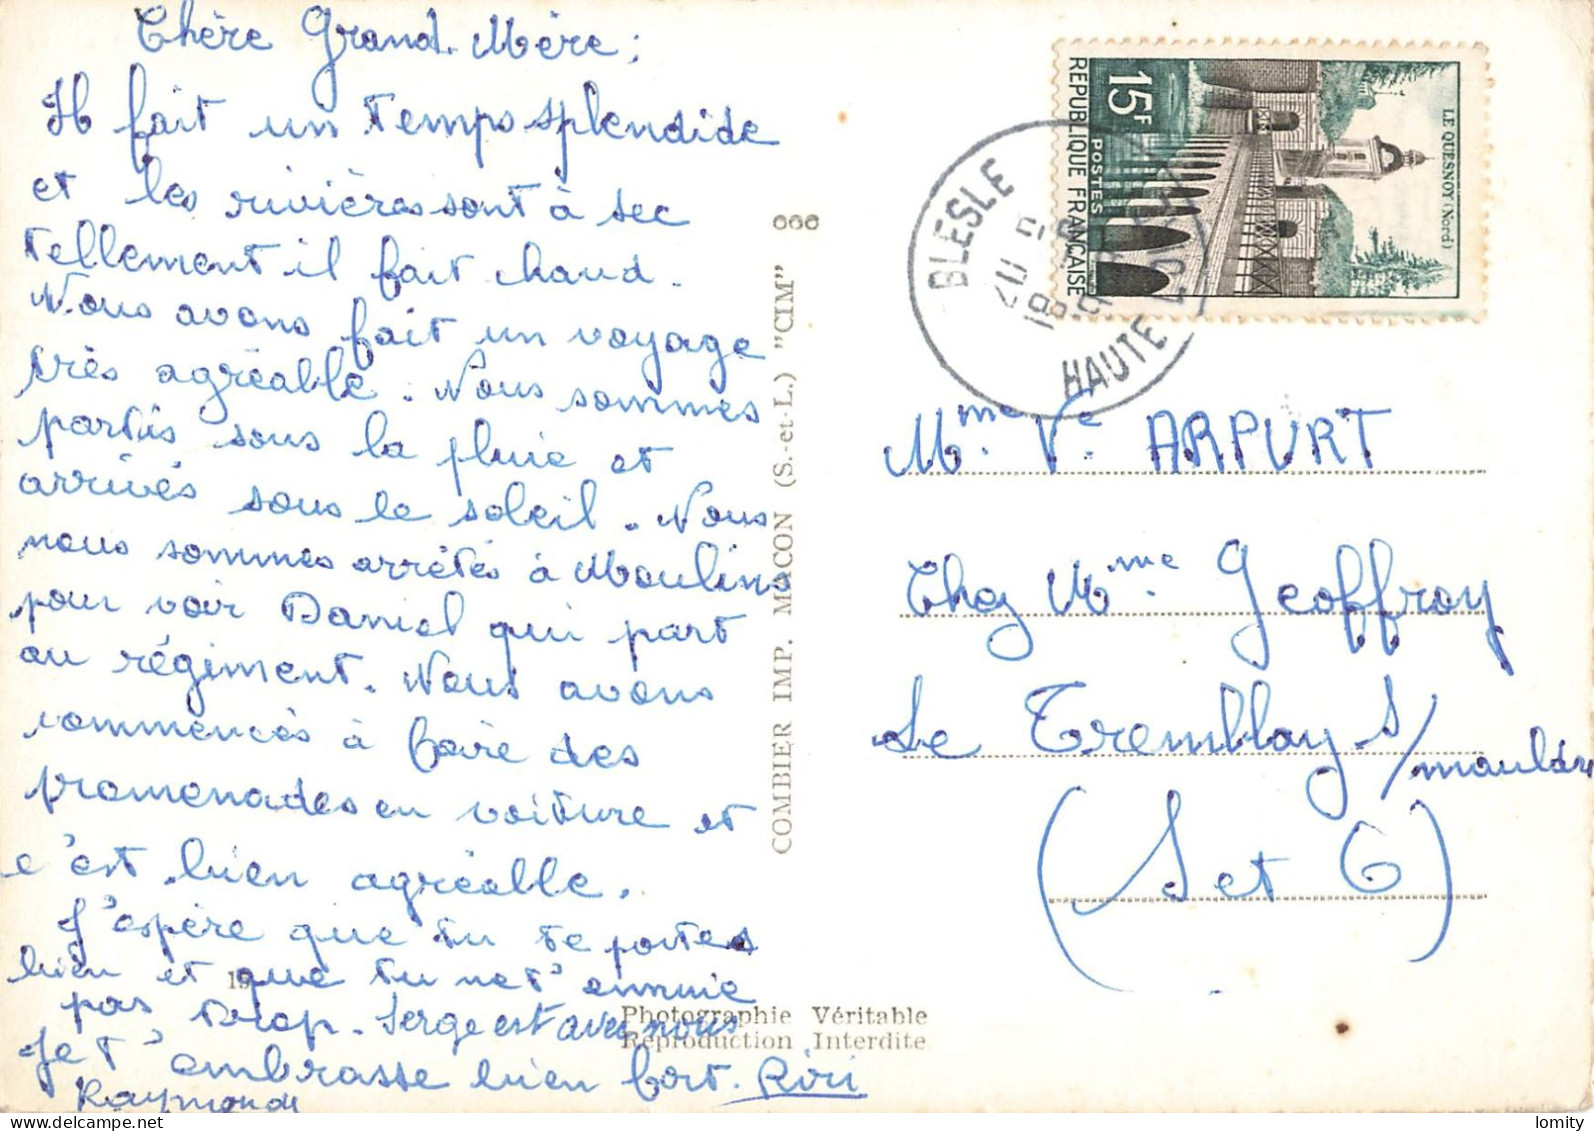 Chère Grand-Mère;
Il fait un temps splendide
et les rivières sont à sec
tellement il fait chaud.
Nous avons fait un voyage
très agréable. Nous sommes
partis sous la pluie et
arrivés sous le soleil. Nous
nous sommes arrêtés à Moulins
pour voir Daniel qui part
au régiment. Nous avons
commencés à faire des
promenades en voiture et
c'est bien agréable.
J'espère que tu te portes
bien et que tu ne t'ennuie
pas trop. Serge est avec nous
Je t'embrasse bien fort. Riri
Raymonde
COMBIER IMP. MACON (S.-et-L.) "CIM"
Photographie Véritable
Reproduction Interdite
REPUBLIQUE FRANÇAISE
15F
POSTES
LE QUESNOY (Nord)
BLESLE
HAUTE LOIRE
Mme Ve ARPURT
Chez Mme Geoffroy
Le Tremblay s/
mauldre
(Set O)
lomity